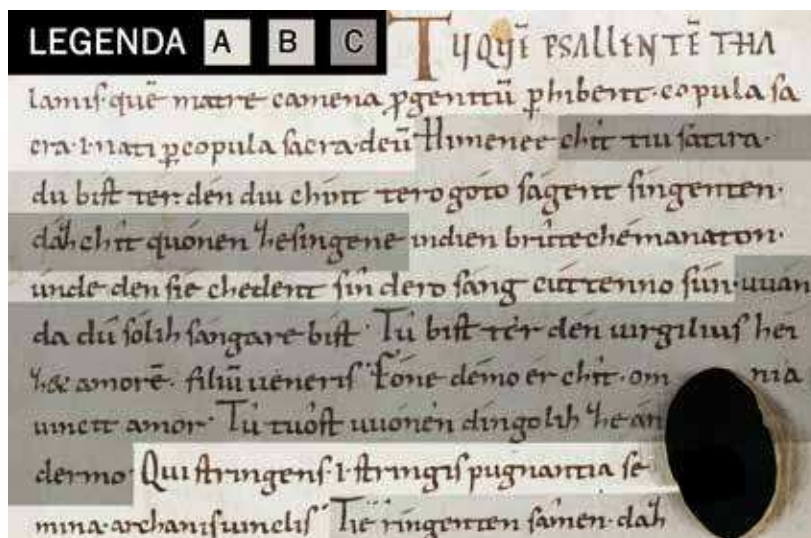 LEGENDA A B C
TU QUĒ PSALLENTĒ THA
lamis· quē matre camena ꝓgenitū ꝑhibent· copula sa
cra· ł nati ꝑ copula sacra· deū· Himenee chit tiu satira·
du bist ter· dén diu chint tero góto ságent síngenten·
dáh chit quónen ꝉhesingene indien brûtechémanaton·
únde den sie chedent sín dero sáng cúttenno sún· uuán
da dû sólih sángare bist· Tû bist tér den uirgilius hei
ꝉhet amorē· filiū ueneris· Fóne démo er chît· om nia
uincit amor· Tû tuôst uuónen díngolih ꝉhe án
dermo· Qui stringens· ł· stringis pugnantia se
mina· archanis uinclis· Tie ríngenten sâmen· dáh